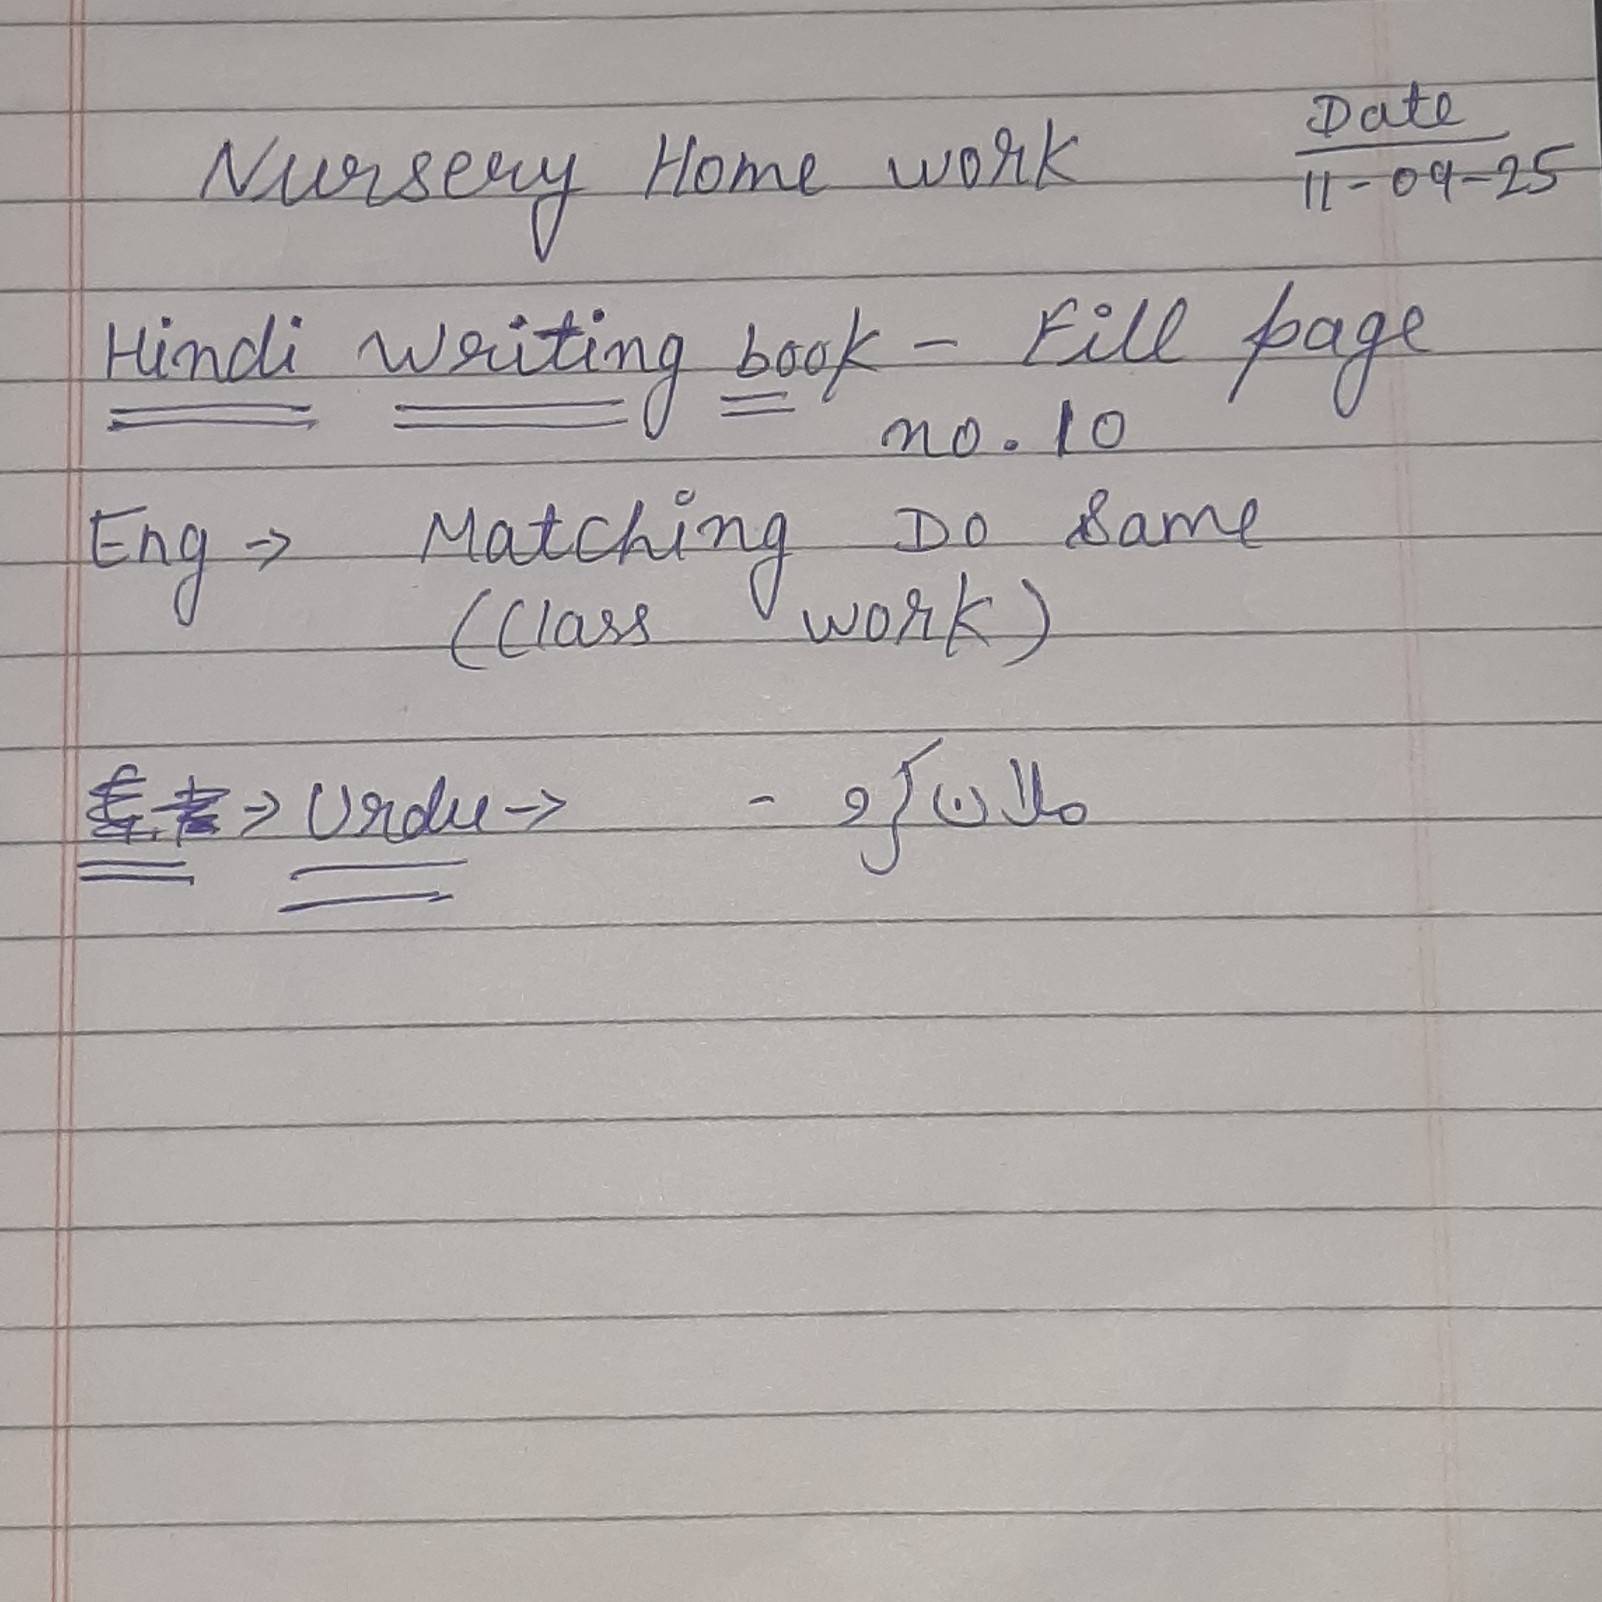 Nursery Home work
Date
11-09-25
Hindi Writing book - Fill page
no. 10
Eng → Matching Do Same
(Class work)
→ Urdu →
ملان کرو -